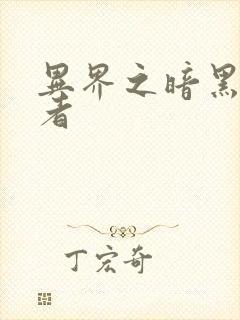 異界之暗黑
者
丁宏奇